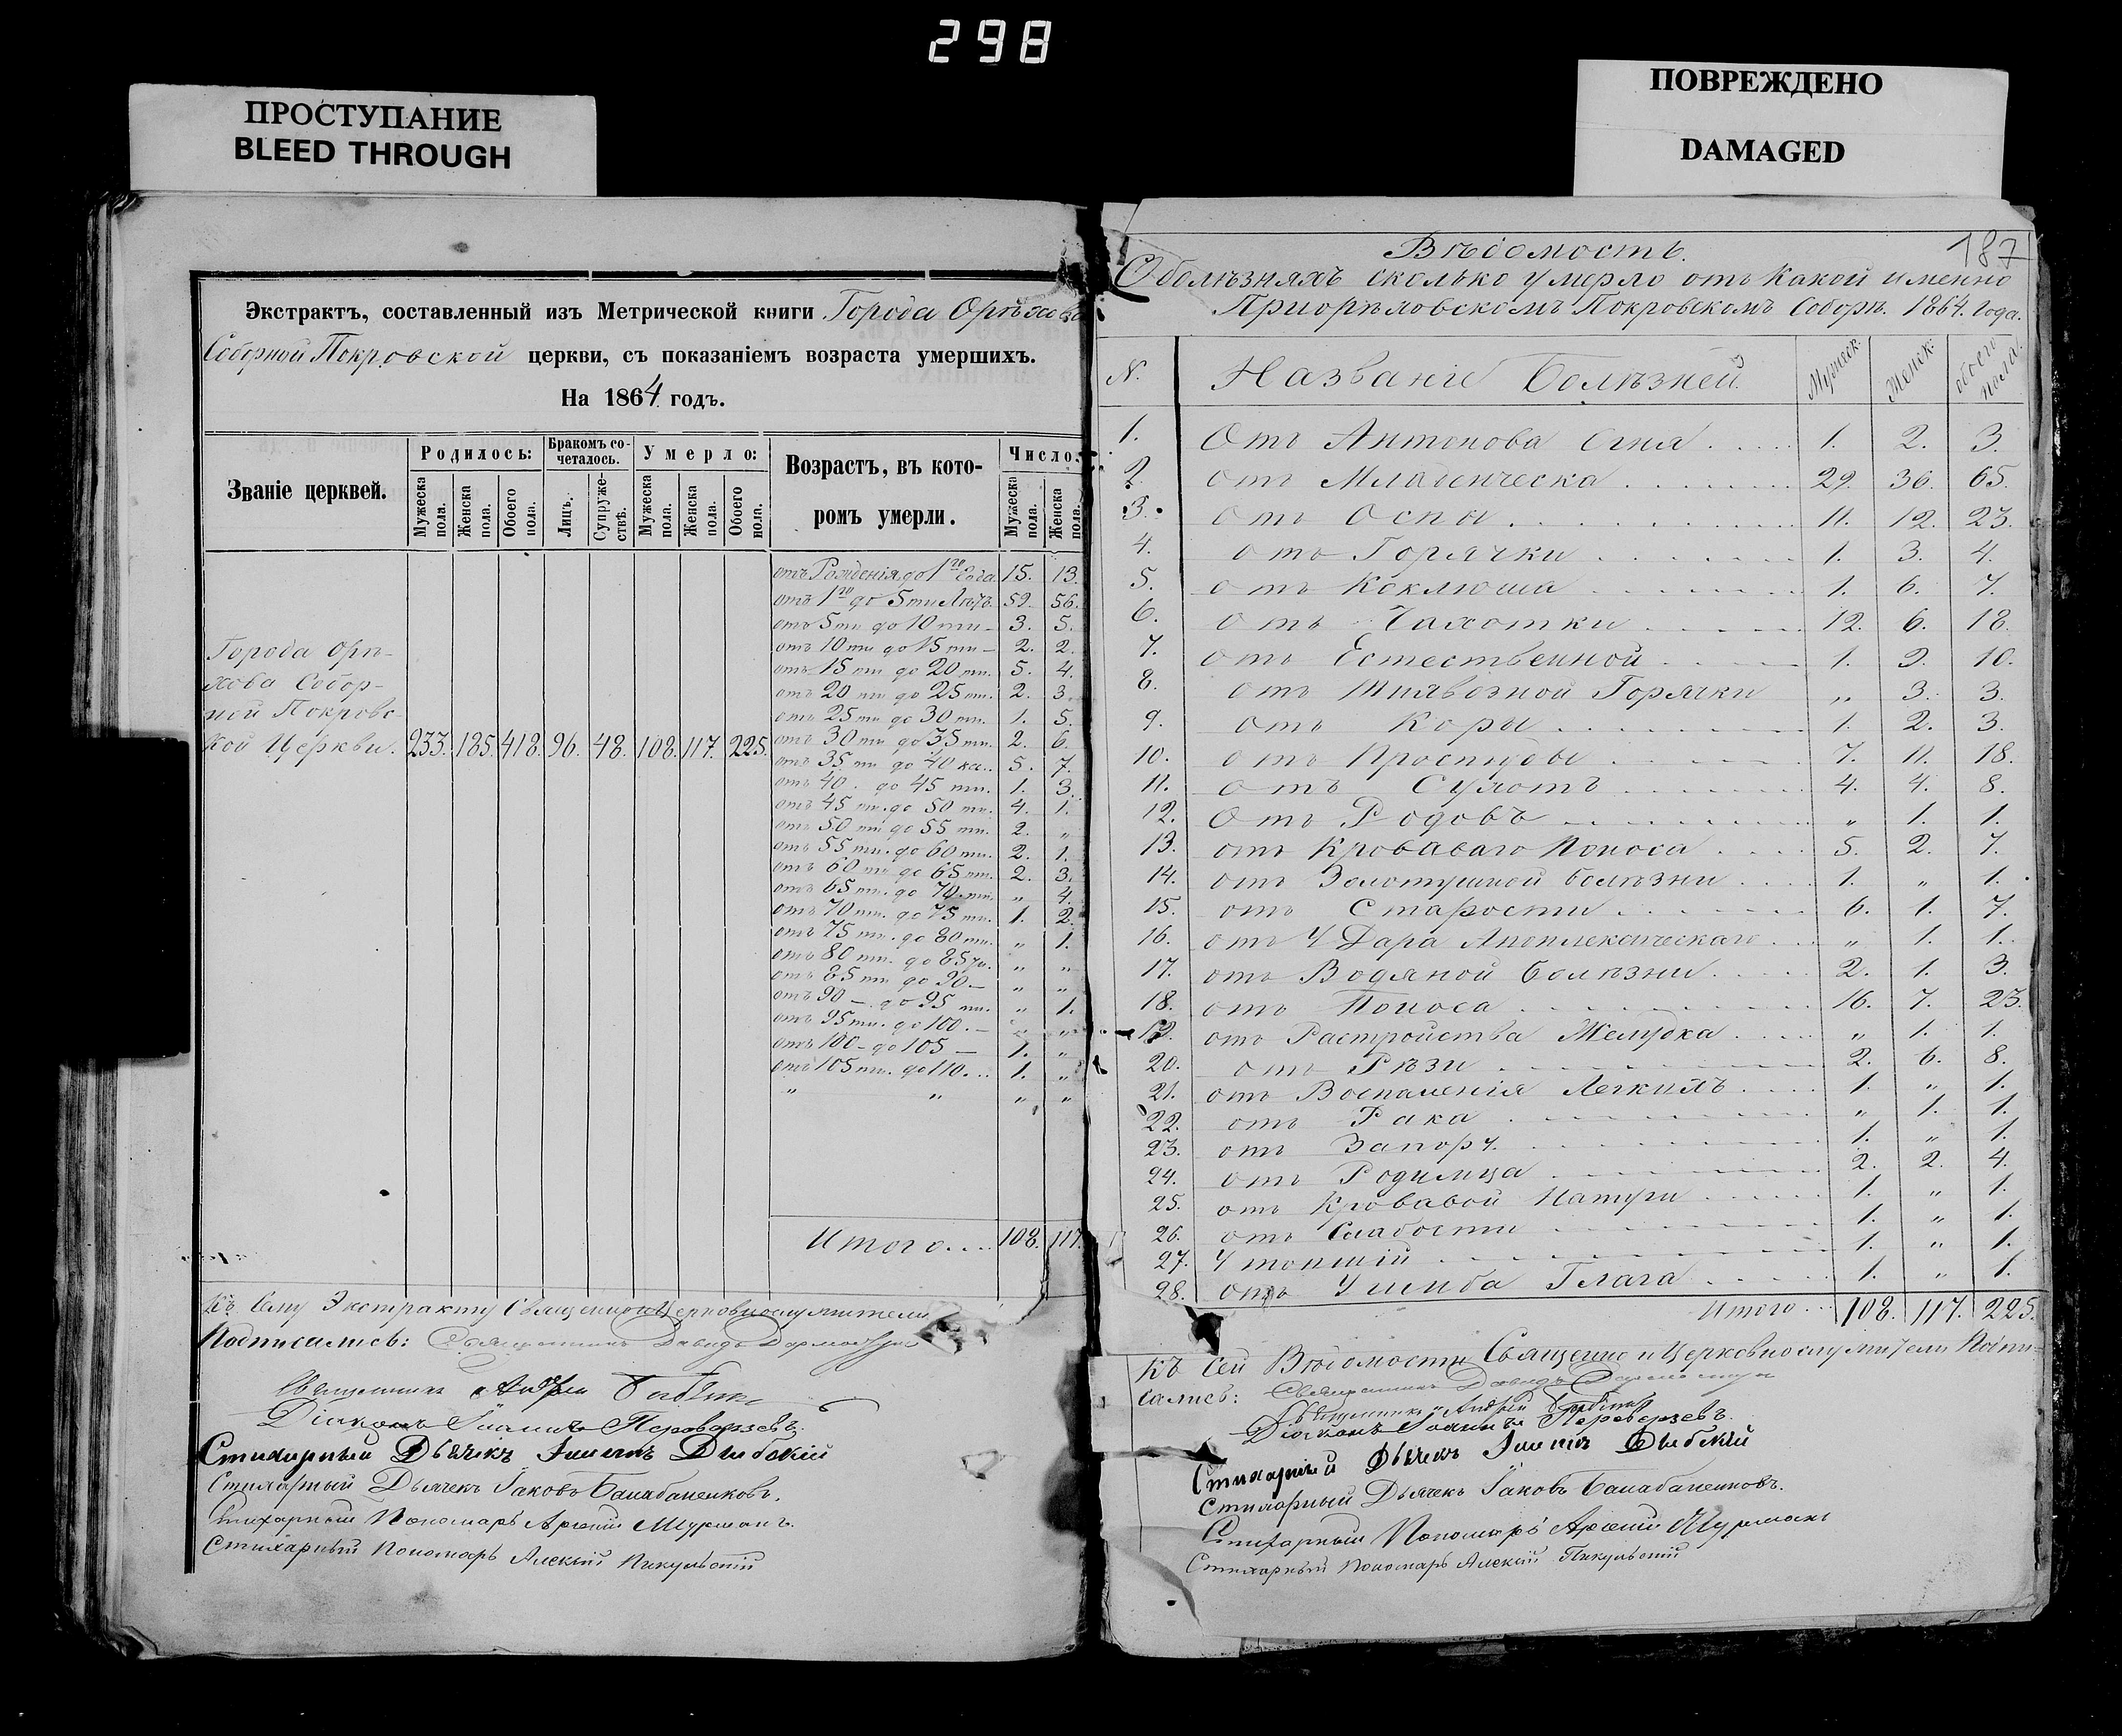 298
ПРОСТУПАНИЕ
BLEED THROUGH
ПОВРЕЖДЕНО
DAMAGED
Экстрактъ, составленный изъ Метрической книги Города Орѣхова
Соборной Покровской церкви, съ показаніемъ возраста умершихъ.
На 1864 годъ.
Званіе церквей.
Родилось:
Бракомъ со-
четалось.
Умерло:
Возрастъ, въ кото-
ромъ умерли.
Число.
Мужеска пола.
Женска пола.
Обоего пола.
Лицъ.
Супруже-
ствъ.
Мужеска пола.
Женска пола.
Обоего пола.
Мужеска пола.
Женска пола.
отъ Рожденія до 1го Года 15. 13.
отъ 1го до 5ти Лѣтъ. 59. 56.
отъ 5ти до 10ти – 3. 5.
отъ 10ти до 15ти – 2. 2.
отъ 15ти до 20ти. 5. 4.
отъ 20ти до 25ти. 2. 3.
отъ 25ти до 30ти. 1. 5.
Города Орѣ-
хова Собор-
ной Покровс-
кой Церкви. 233. 185. 418. 96. 48. 108. 117. 225.
отъ 30ти до 35ти. 2. 6.
отъ 35ти до 40ка. 5. 7.
отъ 40. до 45ти. 1. 3.
отъ 45ти. до 50ти. 4. 1.
отъ 50ти до 55ти. 2. „
отъ 55ти. до 60ти. 2. 1.
отъ 60ти до 65ти. 2. 3.
отъ 65ти. до 70.ти. „ 4.
отъ 70ти. до 75ти. 1. 2.
отъ 75ти. до 80ти. „ 1.
отъ 80ти. до 85ти. „ „
отъ 85ти до 90 – „ „
отъ 90 –. до 95ти. „ 1.
отъ 95ти. до 100. – „ „
отъ 100 – до 105 – 1. „
отъ 105ти. до 110... 1. „
„ „ „ „
Итого.... 108. 117.
Къ Сему Экстракту Священно и Церковнослужители
Подписались: Священникъ Давидъ
Священникъ Андрей
Діаконъ Іоаннъ Переверзевъ
Стихарный Дьячекъ Дибскій
Стихарный Дьячекъ Іаковъ Балабаненковъ.
Стихарный Пономарь Арсеній Шурманъ.
Стихарный Пономарь Алексій Пикульскій
187
Вѣдомость.
О болѣзняхъ сколько умерло отъ какой именно
При Орѣховскомъ Покровскомъ Соборѣ. 1864. года.
N. Названіе Болѣзней. Мужеск. Женск: обоего пола.
1. Отъ Антонова Огня ..... 1. 2. 3.
2. отъ Младенческа ....... 29. 36. 65.
3. отъ Оспы .......... 11. 12. 23.
4. отъ Горячки ....... 1. 3. 4.
5. отъ Коклюша ....... 1. 6. 7.
6. отъ Чахотки ....... 12. 6. 18.
7. отъ Естественной ..... 1. 9. 10.
8. отъ Горячки „ 3. 3.
9. отъ Коры ......... 1. 2. 3.
10. отъ Простуды ....... 7. 11. 18.
11. отъ Сухотъ ....... 4. 4. 8.
12. Отъ Родовъ ......... „ 1. 1.
13. отъ Кроваваго Поноса .... 5. 2. 7.
14. отъ Золотушной болѣзни .... 1. „ 1.
15. отъ Старости ....... 6. 1. 7.
16. отъ УДара Апоплексическаго ... „ 1. 1.
17. отъ Водяной болѣзни ..... 2. 1. 3.
18. отъ Поноса .......... 16. 7. 23.
19. отъ Растройства Желудка ..... „ 1. 1.
20. отъ Рѣзи .......... 2. 6. 8.
21. отъ Воспаленія Легкихъ ..... 1. „ 1.
22. отъ Рака .......... „ 1. 1.
23. отъ Запору. ......... 1. „ 1.
24. отъ Родимца ......... 2. 2. 4.
25. отъ Кровавой Натуги ..... 1. „ 1.
26. отъ Слабости ........ 1. „ 1.
27. Утопшій .......... 1. „ 1.
28. отъ Ушиба ..... 1. „ 1.
Итого ... 108. 117. 225.
Къ Сей Вѣдомости Священно и Церковнослужители Подпи-
сались: Священникъ Давидъ
Священникъ Андрей
Діаконъ Іоаннъ Переверзевъ.
Стихарный Дьячекъ Дибскій
Стихарный Дьячекъ Іаковъ Балабаненковъ.
Стихарный Пономарь Арсеній Шурманъ
Стихарный Пономарь Алексій Пикульскій